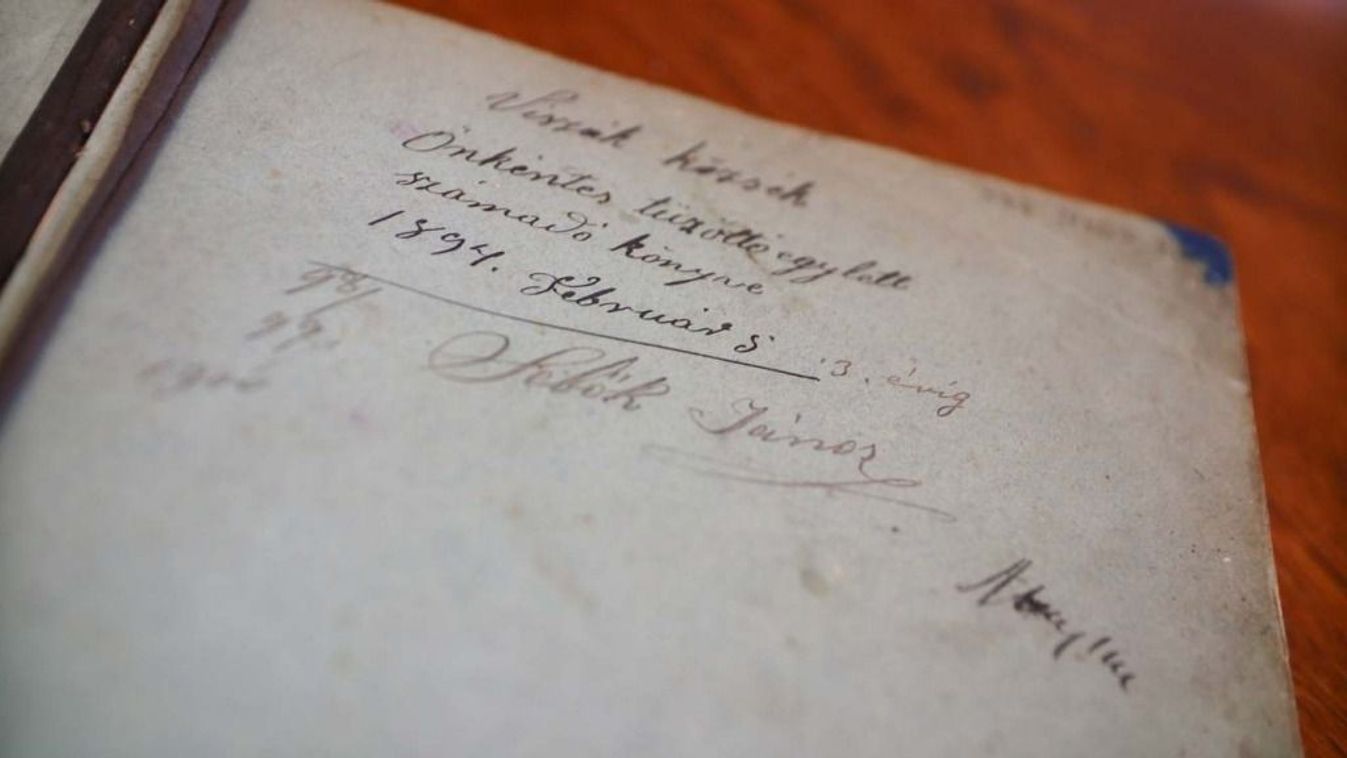 Viszák község
Önkéntes tűzóltó egylett
számadó könyve
1894. Február 5
.3. évig
Sebők János